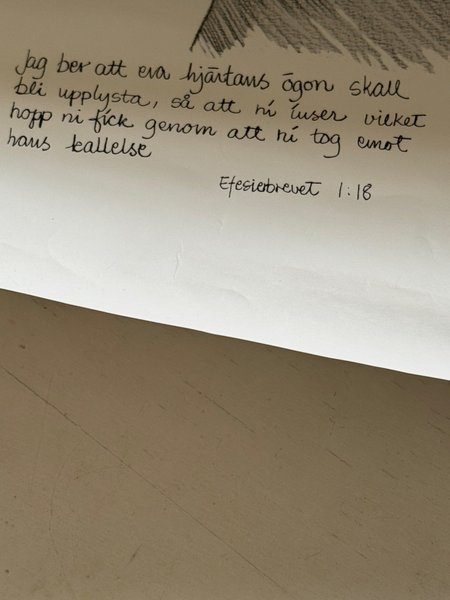 Jag ber att era hjärtans ögon skall
bli upplysta, så att ni inser vilket
hopp ni fick genom att ni tog emot
hans kallelse
Efesierbrevet 1:18